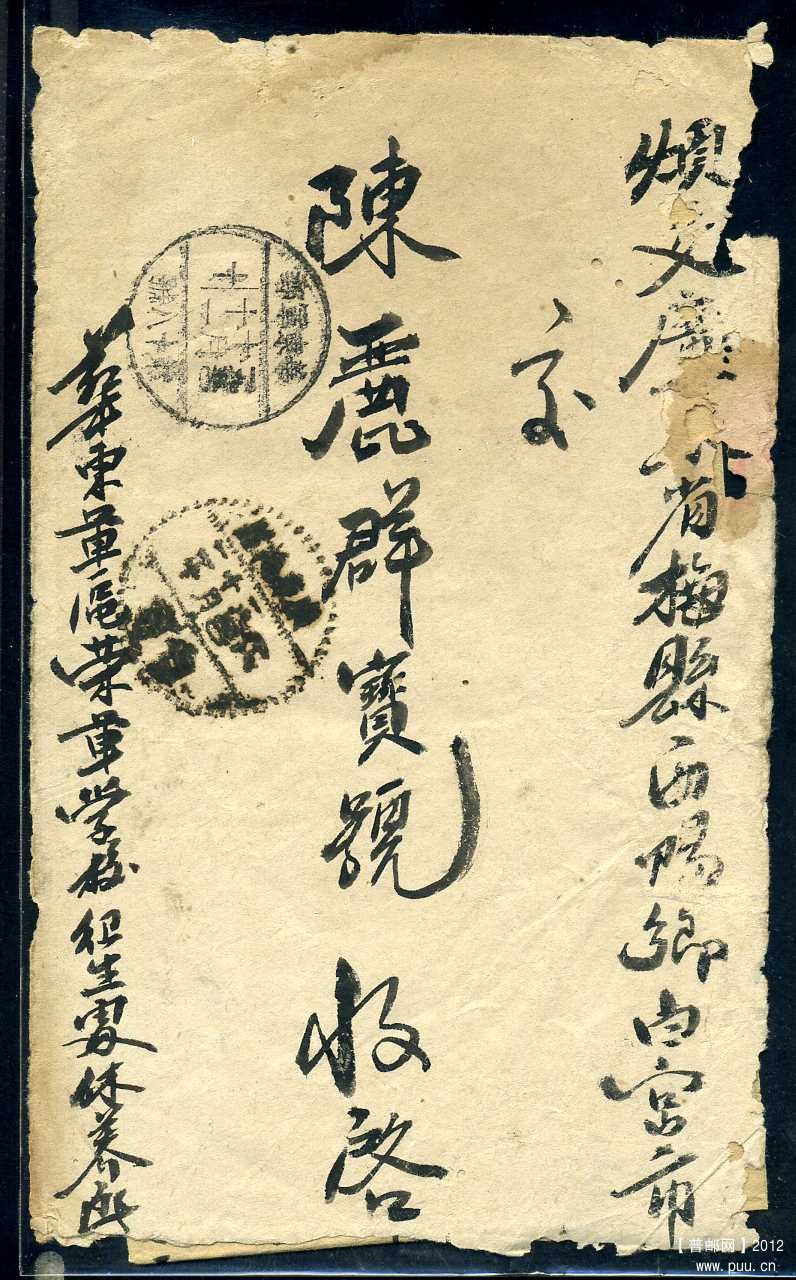 煩交廣東省梅縣西陽鄉白宮市
交
陳麗群寶號收啓
華東軍區荣軍学校衛生處休养所
【普邮网】2012
www.puu.cn